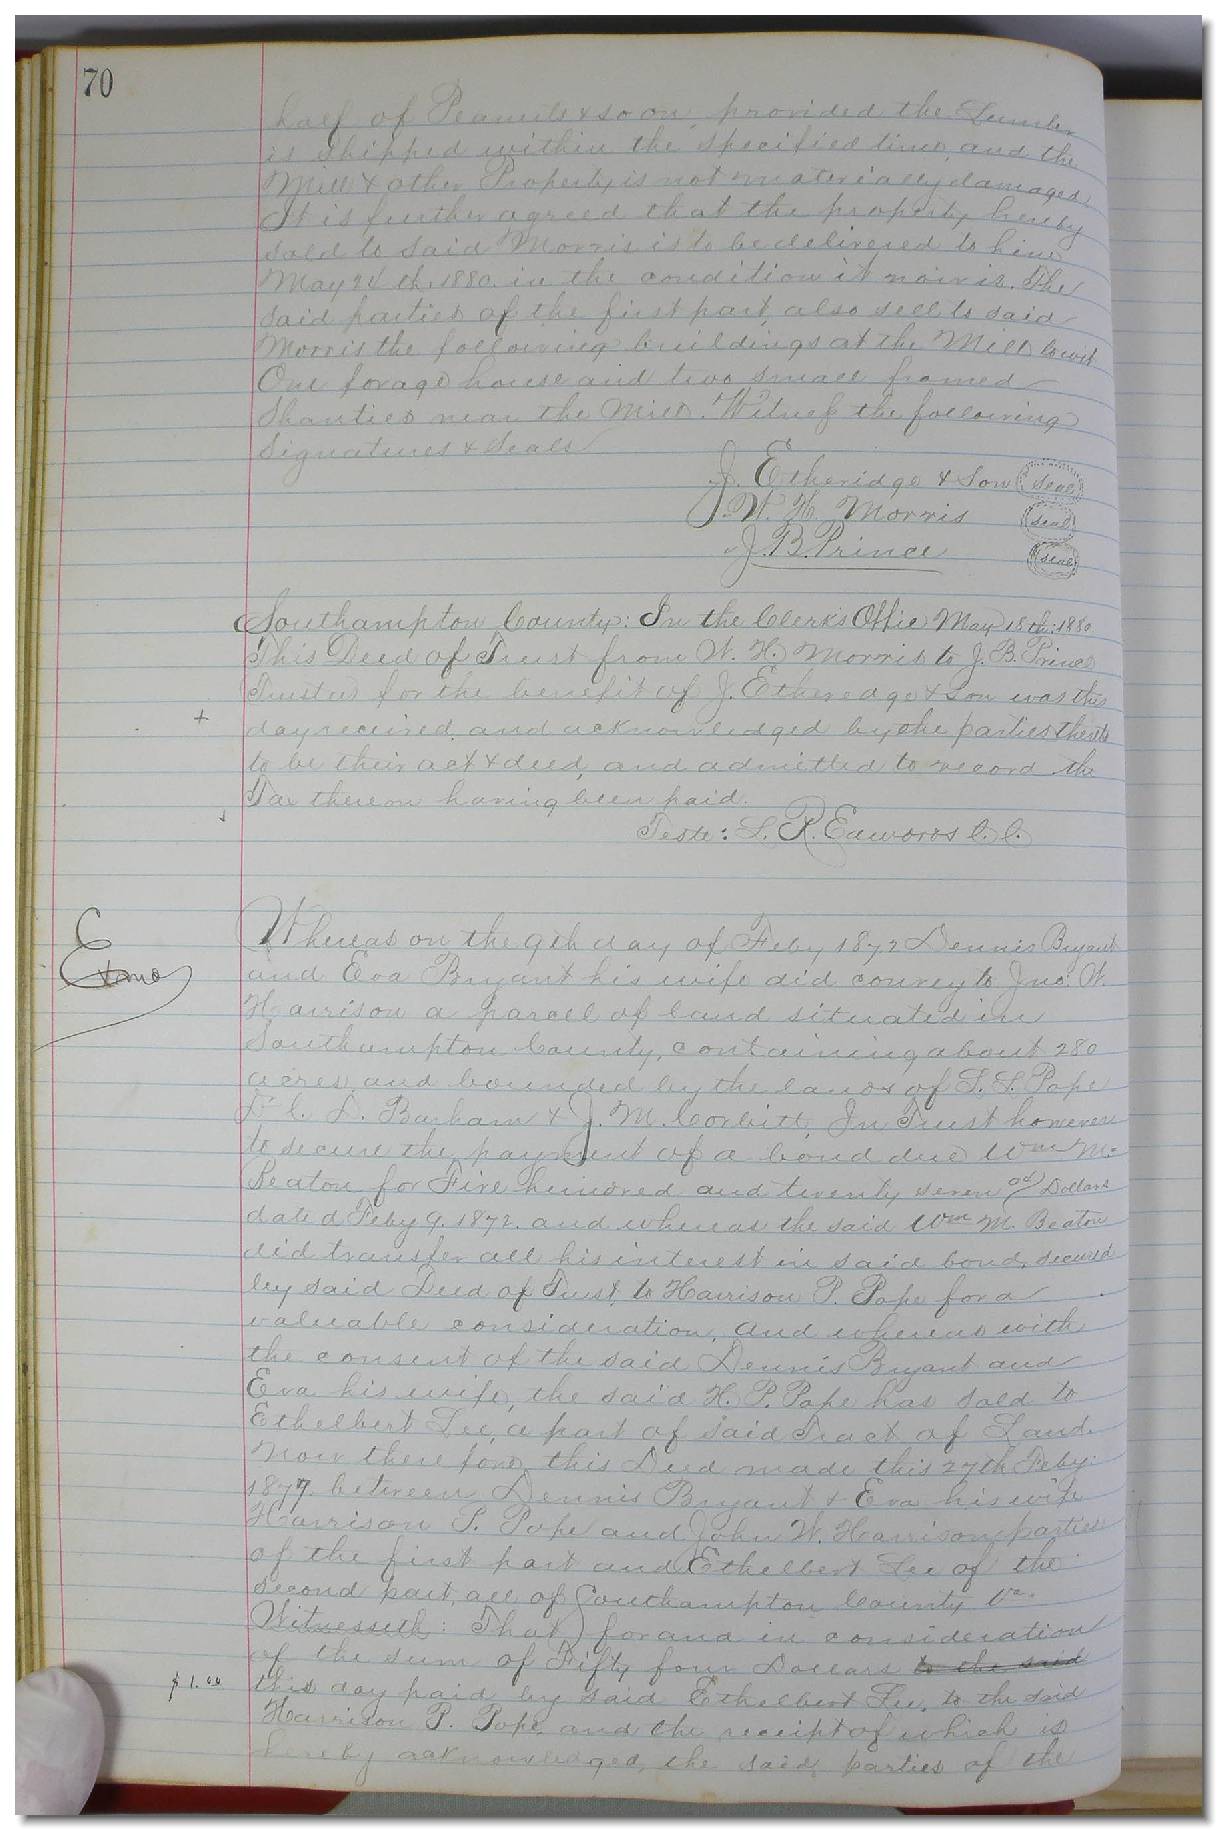 70
half of Peanuts & so on, provided the Lumber
is shipped within the specified time, and the
Mill & other Property is not materially damaged.
It is further agreed that the property hereby
sold to said Morris is to be delivered to him
May 24th, 1880. in the condition it now is. The
said parties of the first part, also sell to said
Morris the following buildings at the Mill, towit
One forage house and two small framed
Shanties near the Mill. Witness the following
Signatures & Seals
J. Etheridge & Son (seal)
J. W. H. Morris (seal)
J. B. Prince (seal)
Southampton County: In the Clerk's Office May 18th: 1880
This Deed of Trust from W. H. Morris to J. B. Prince
Trustee for the benefit of J. Etheredge & Son was this
+
day received, and acknowledged by the parties thereto
to be their act & deed, and admitted to record the
Tax thereon having been paid.
Teste: L. R. Edwards C. C.
Whereas on the 9th day of Feby 1872 Dennis Bryant
and Eva Bryant his wife did convey to Jno. W.
Harrison a parcel of land situated in
Southampton County, containing about 280
acres, and bounded by the lands of L. L. Pope
D. Barham & J. M. Corbitt, In Trust however
to secure the payment of a bond due Wm M.
Beaton for Five hundred and twenty seven Dollars
dated Feby 9. 1872. and whereas the said Wm M. Beaton
did transfer all his interest in said bond, secured
by said Deed of Trust, to Harrison P. Pope for a
valuable consideration, and whereas with
the consent of the said Dennis Bryant and
Eva his wife, the said H. P. Pope has sold to
Ethelbert Lee, a part of said Tract of Land.
Now therefore, this Deed made this 27th Feby.
1877. between Dennis Bryant & Eva his wife
Harrison P. Pope and John W. Harrison parties
of the first part and Ethelbert Lee of the
second part, all of Southampton County Va.
Witnesseth: That, for and in consideration
of the sum of Fifty four Dollars to the said
$1.00
this day paid by said Ethelbert Lee, to the said
Harrison P. Pope, and the receipt of which is
hereby acknowledged, the said, parties of the